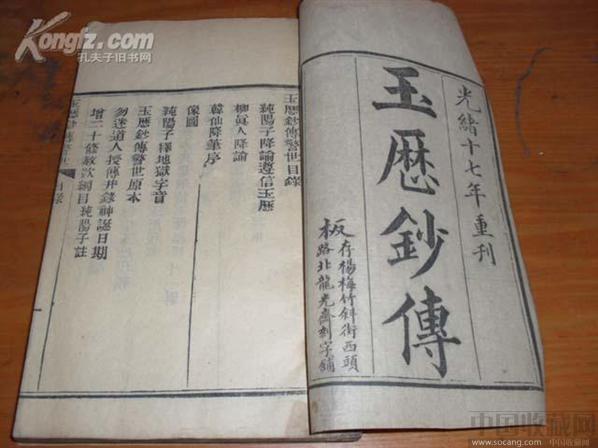 Kongfz.com
孔夫子旧书网
光緒十七年重刊
玉歷鈔傳
板存楊梅竹斜街西頭
路北龍光齋刻字鋪
玉歷鈔傳警世目錄
純陽子降諭遵信玉歷
柳眞人降諭
韓仙降筆序
像圖
純陽子釋地獄字音
玉歷鈔傳警世原本
勿迷道人授傳井錄神誕日期
增二十條赦欵綱目純陽子註
目錄
中国收藏网
www.socang.com 中国收藏网